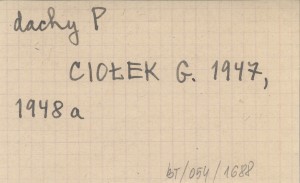 dachy P
CIOŁEK G. 1947,
1948 a
bT/054/1688